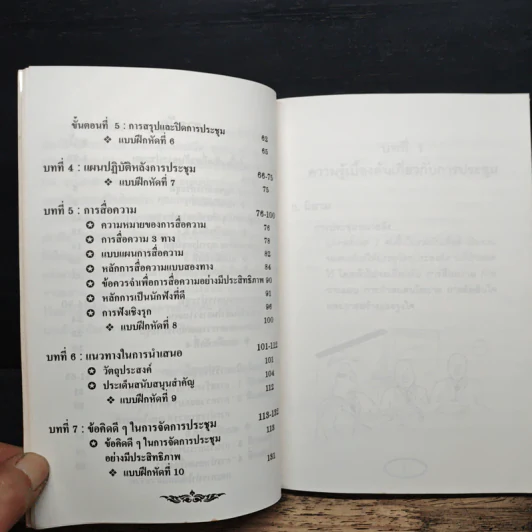 ขั้นตอนที่ 5 : การสรุปและปิดการประชุม 62
❖ แบบฝึกหัดที่ 6 65
บทที่ 4 : แผนปฏิบัติหลังการประชุม 66-75
❖ แบบฝึกหัดที่ 7 75
บทที่ 5 : การสื่อความ 76-100
✪ ความหมายของการสื่อความ 76
✪ การสื่อความ 3 ทาง 78
✪ แบบแผนการสื่อความ 82
✪ หลักการสื่อความแบบสองทาง 84
✪ ข้อควรจำเพื่อการสื่อความอย่างมีประสิทธิภาพ 90
✪ หลักการเป็นนักฟังที่ดี 91
✪ การฟังเชิงรุก 96
❖ แบบฝึกหัดที่ 8 100
บทที่ 6 : แนวทางในการนำเสนอ 101-112
✪ วัตถุประสงค์ 101
✪ ประเด็นสนับสนุนสำคัญ 104
❖ แบบฝึกหัดที่ 9 112
บทที่ 7 : ข้อคิดดี ๆ ในการจัดการประชุม 113-131
✪ ข้อคิดดี ๆ ในการจัดการประชุม 113
อย่างมีประสิทธิภาพ
❖ แบบฝึกหัดที่ 10 131